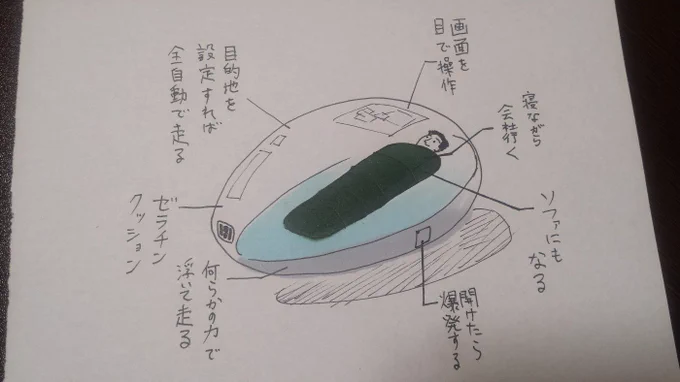 画面を
目で操作
寝ながら
会社行く
ソファにも
なる
開けたら
爆発する
目的地を
設定すれば
全自動で走る
ゼラチン
クッション
何らかの力で
浮いて走る